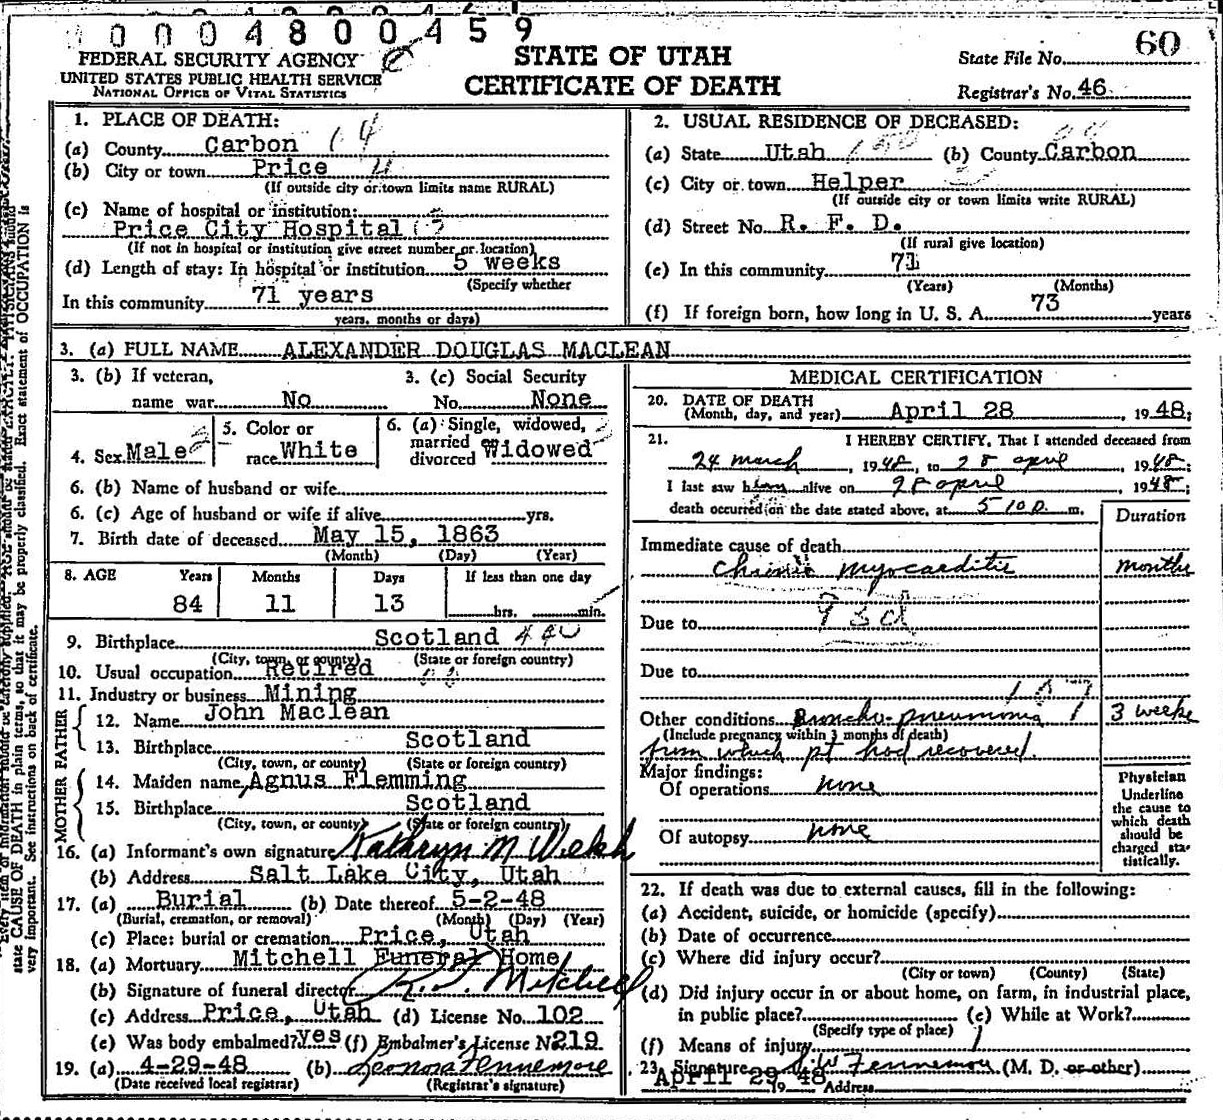 0004800459
60
FEDERAL SECURITY AGENCY
UNITED STATES PUBLIC HEALTH SERVICE
NATIONAL OFFICE OF VITAL STATISTICS
STATE OF UTAH
CERTIFICATE OF DEATH
State File No.
Registrar's No. 46
1. PLACE OF DEATH:
(a) County Carbon
(b) City or town Price
(If outside city or town limits name RURAL)
(c) Name of hospital or institution:
Price City Hospital
(If not in hospital or institution give street number or location)
(d) Length of stay: In hospital or institution 5 weeks
(Specify whether
In this community 71 years
years, months or days)
2. USUAL RESIDENCE OF DECEASED:
(a) State Utah (b) County Carbon
(c) City or town Helper
(If outside city or town limits write RURAL)
(d) Street No. R. F. D.
(If rural give location)
(e) In this community 71
(Years) (Months)
(f) If foreign born, how long in U. S. A. 73 years
3. (a) FULL NAME ALEXANDER DOUGLAS MACLEAN
3. (b) If veteran,
name war No
3. (c) Social Security
No. None
4. Sex Male
5. Color or
race White
6. (a) Single, widowed,
married
divorced Widowed
6. (b) Name of husband or wife
6. (c) Age of husband or wife if alive yrs.
7. Birth date of deceased May 15, 1863
(Month) (Day) (Year)
8. AGE Years Months Days If less than one day
84 11 13 hrs. min.
9. Birthplace Scotland
(City, town, or county) (State or foreign country)
10. Usual occupation Retired
11. Industry or business Mining
FATHER
12. Name John Maclean
13. Birthplace Scotland
(City, town, or county) (State or foreign country)
MOTHER
14. Maiden name Agnus Flemming
15. Birthplace Scotland
(City, town, or county) (State or foreign country)
16. (a) Informant's own signature Kathryn M Welsh
(b) Address Salt Lake City, Utah
17. (a) Burial (b) Date thereof 5-2-48
(Burial, cremation, or removal) (Month) (Day) (Year)
(c) Place: burial or cremation Price, Utah
18. (a) Mortuary Mitchell Funeral Home
(b) Signature of funeral director R. J. Mitchell
(c) Address Price, Utah (d) License No. 102
(e) Was body embalmed? yes (f) Embalmer's License No. 219
19. (a) 4-29-48 (b) Leonora Fennemore
(Date received local registrar) (Registrar's signature)
MEDICAL CERTIFICATION
20. DATE OF DEATH
(Month, day, and year) April 28, 1948;
21. I HEREBY CERTIFY, That I attended deceased from
24 march, 1948, to 28 april 1948;
I last saw him alive on 28 april, 1948;
death occurred on the date stated above, at 5 10 p. m.
Duration
Immediate cause of death
chronic myocarditis months
Due to 93d
Due to
107
Other conditions Broncho-pneumonia 3 weeks
(Include pregnancy within 3 months of death)
from which pt had recovered.
Major findings:
Of operations none
Of autopsy none
Physician
Underline
the cause to
which death
should be
charged sta-
tistically.
22. If death was due to external causes, fill in the following:
(a) Accident, suicide, or homicide (specify)
(b) Date of occurrence
(c) Where did injury occur?
(City or town) (County) (State)
(d) Did injury occur in or about home, on farm, in industrial place,
in public place? (e) While at Work?
(Specify type of place)
(f) Means of injury
23. Signature Fennemore (M. D. or other)
April 29 1948 Address
state CAUSE OF DEATH in plain terms, so that it may be properly classified. Exact statement of OCCUPATION is
very important. See instructions on back of certificate.